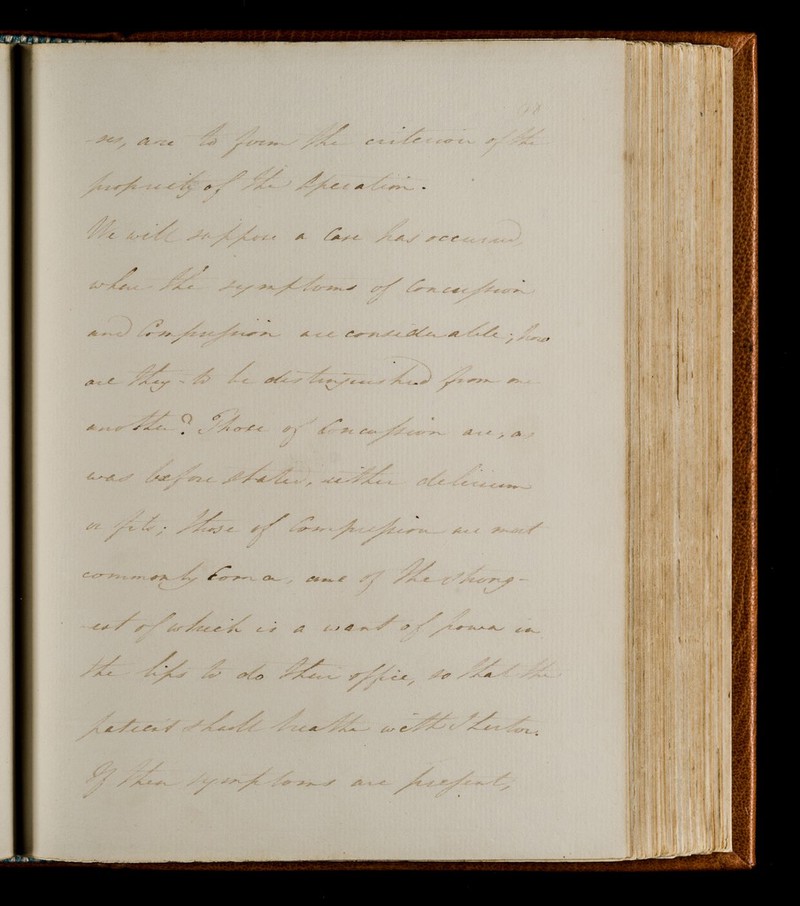 -ses, are to form the criterion of the
propriety of the Operation.
We will suppose a Case has occurred
where the symptoms of Concussion
and Compression are considerable; how
are they to be distinguished from one
another? Those of Concussion are, as
was before stated, either delirium
or fits; those of Compression are most
commonly Coma, one of the strong-
-est of which is a want of power in
the lips to do their office, so that the
patient shall breathe with Stertor.
If these symptoms are present,